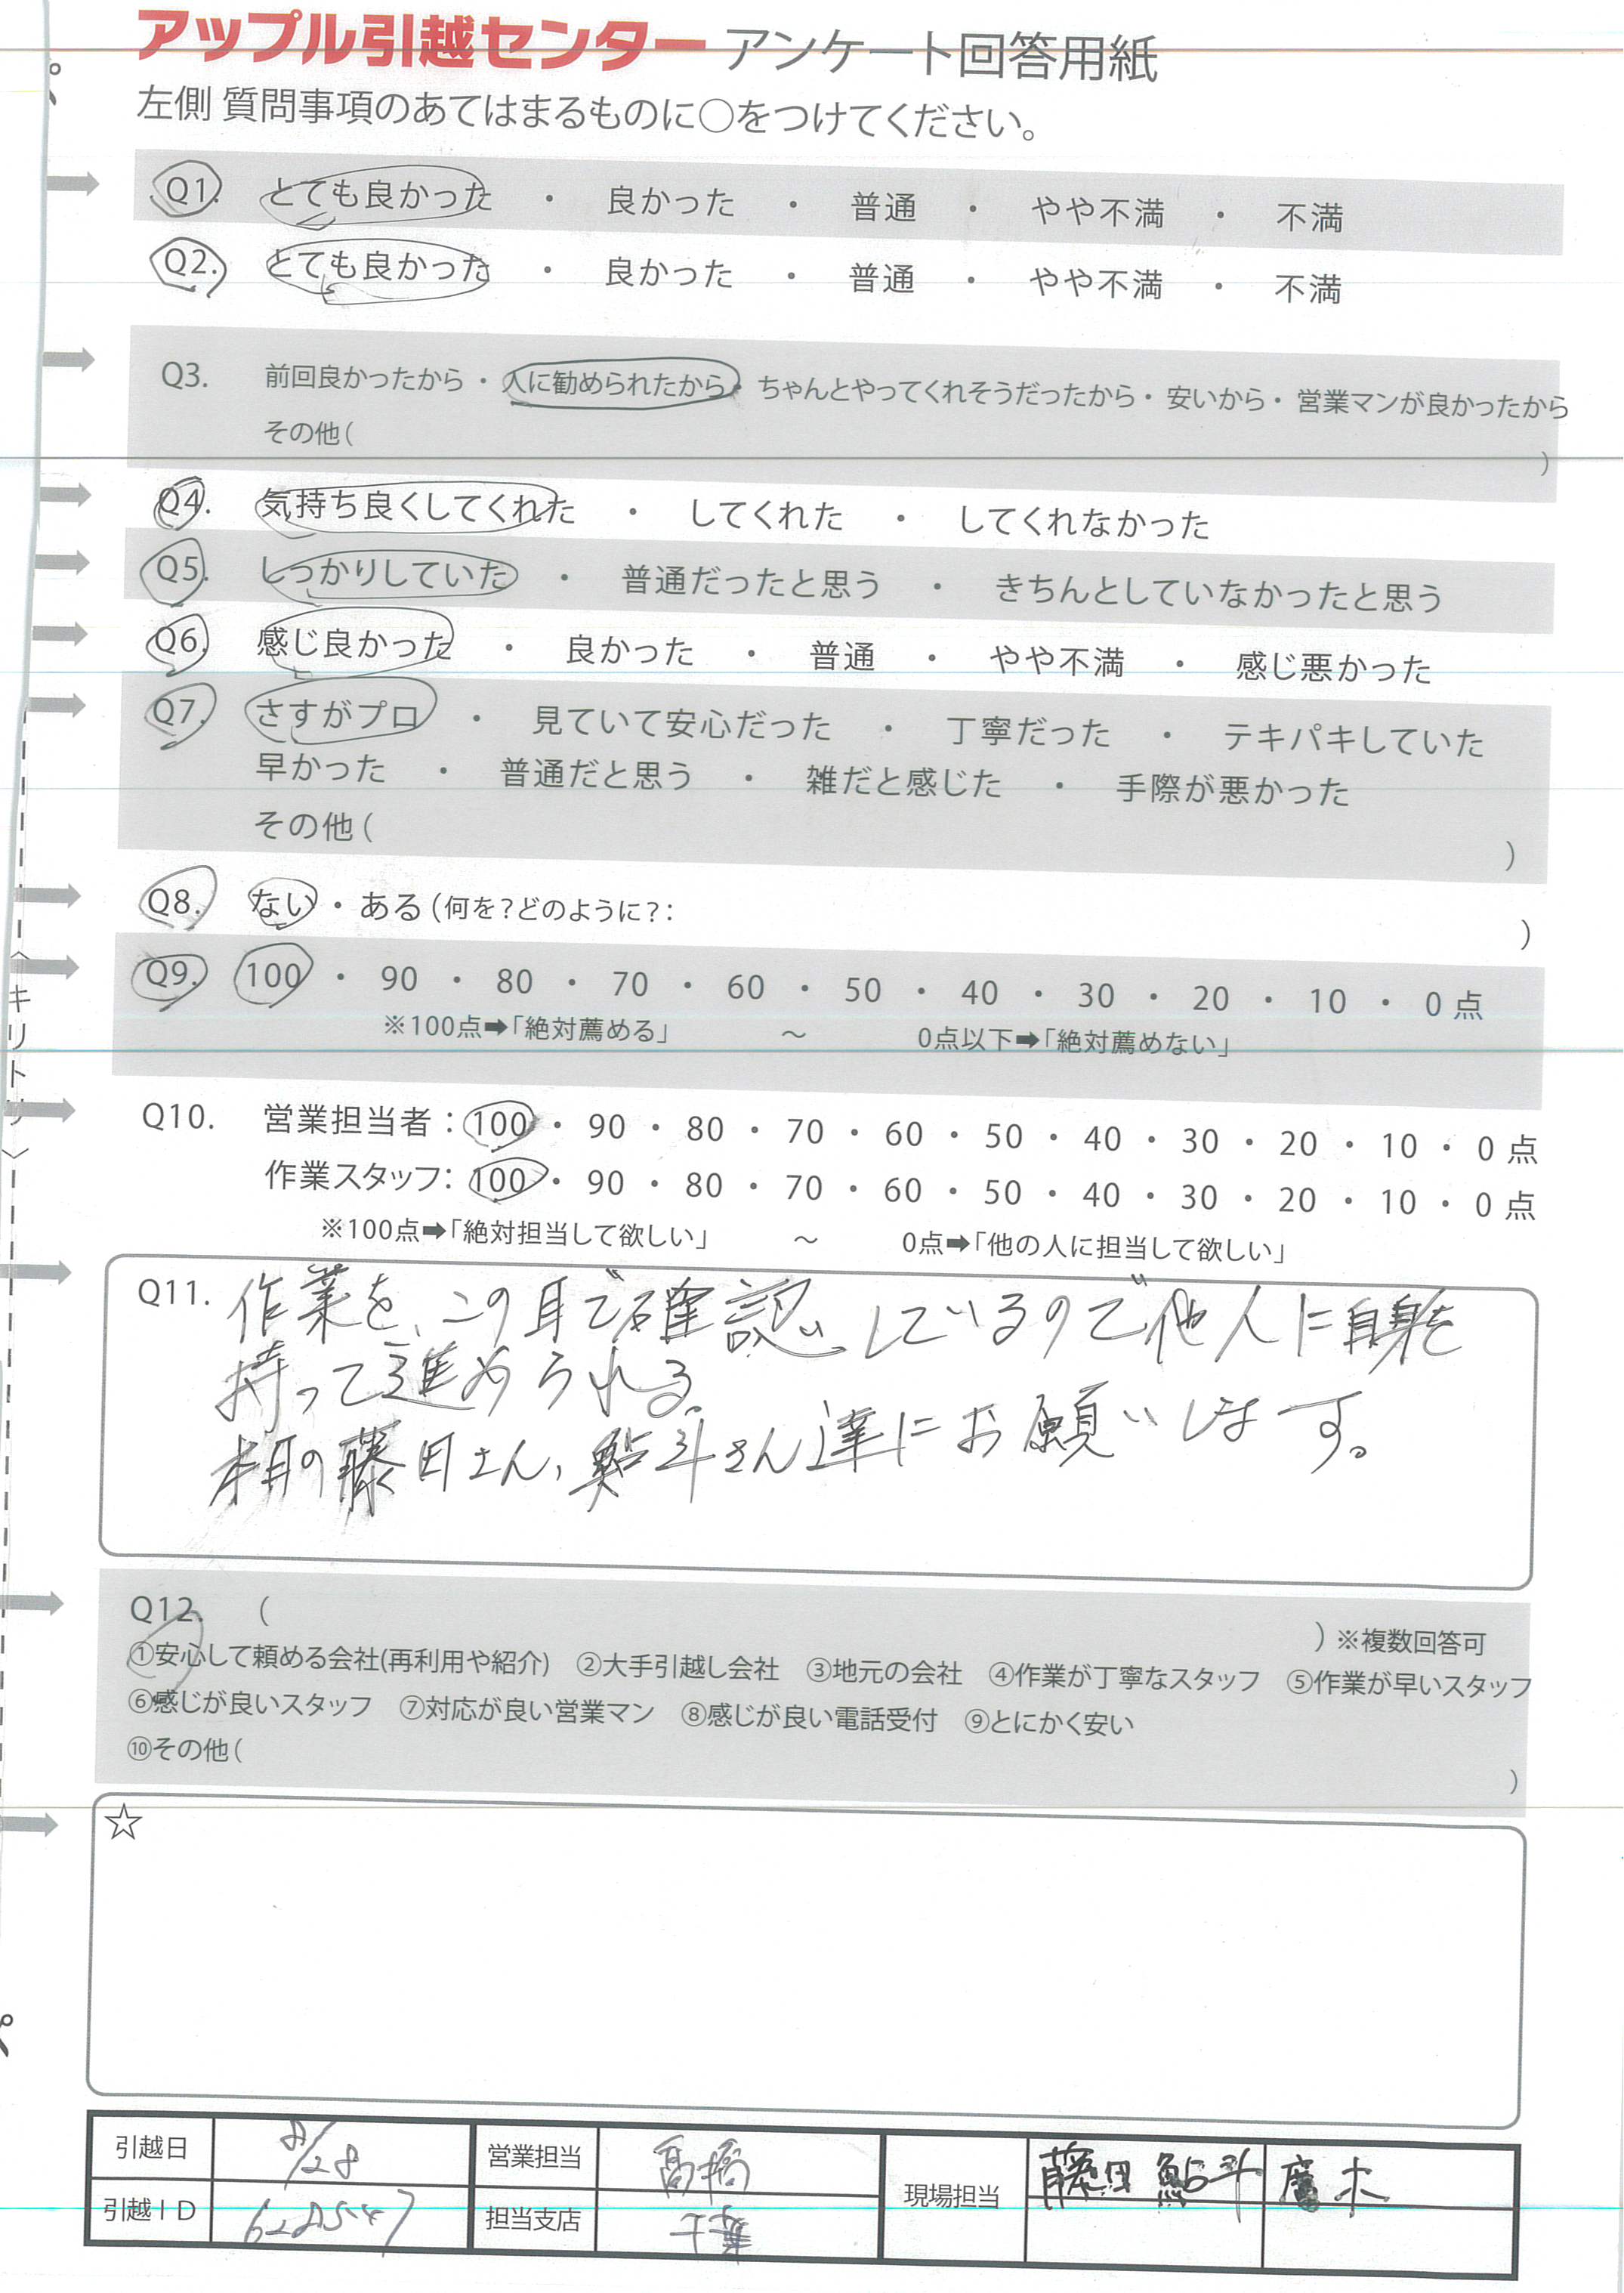 アップル引越センター アンケート回答用紙
左側 質問事項のあてはまるものに○をつけてください。
Q1. とても良かった ・ 良かった ・ 普通 ・ やや不満 ・ 不満
Q2. とても良かった ・ 良かった ・ 普通 ・ やや不満 ・ 不満
Q3. 前回良かったから・人に勧められたから・ちゃんとやってくれそうだったから・安いから・営業マンが良かったから
その他( )
Q4. 気持ち良くしてくれた ・ してくれた ・ してくれなかった
Q5. しっかりしていた ・ 普通だったと思う ・ きちんとしていなかったと思う
Q6. 感じ良かった ・ 良かった ・ 普通 ・ やや不満 ・ 感じ悪かった
Q7. さすがプロ ・ 見ていて安心だった ・ 丁寧だった ・ テキパキしていた
早かった ・ 普通だと思う ・ 雑だと感じた ・ 手際が悪かった
その他( )
Q8. ない・ある(何を?どのように?: )
Q9. 100 ・ 90 ・ 80 ・ 70 ・ 60 ・ 50 ・ 40 ・ 30 ・ 20 ・ 10 ・ 0点
※100点➡「絶対薦める」 ～ 0点以下➡「絶対薦めない」
Q10. 営業担当者:100・90・80・70・60・50・40・30・20・10・0点
作業スタッフ:100・90・80・70・60・50・40・30・20・10・0点
※100点➡「絶対担当して欲しい」 ～ 0点➡「他の人に担当して欲しい」
Q11. 作業を、この耳で確認しているので他人に自身を
持って進められる。
藤田さん、鮎斗さん達にお願いします。
Q12. ( )※複数回答可
①安心して頼める会社(再利用や紹介) ②大手引越し会社 ③地元の会社 ④作業が丁寧なスタッフ ⑤作業が早いスタッフ
⑥感じが良いスタッフ ⑦対応が良い営業マン ⑧感じが良い電話受付 ⑨とにかく安い
⑩その他( )
☆
引越日 8/28 営業担当 髙橋 現場担当 藤田 鮎斗 廣木
引越ID 担当支店 千葉
〈キリトリ〉